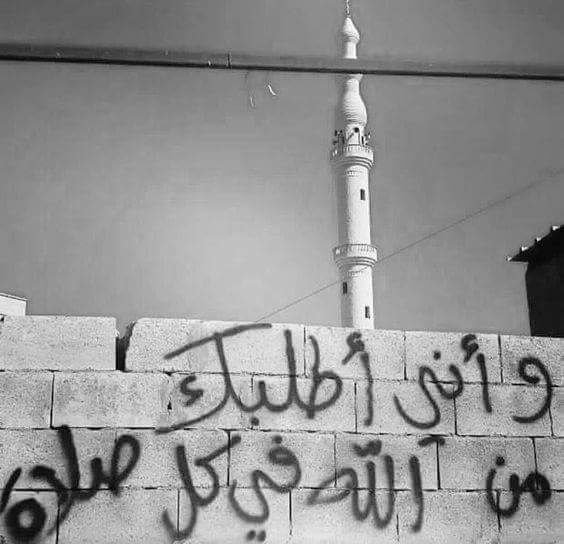 وأني أطلبك
من الله في كل صلاة